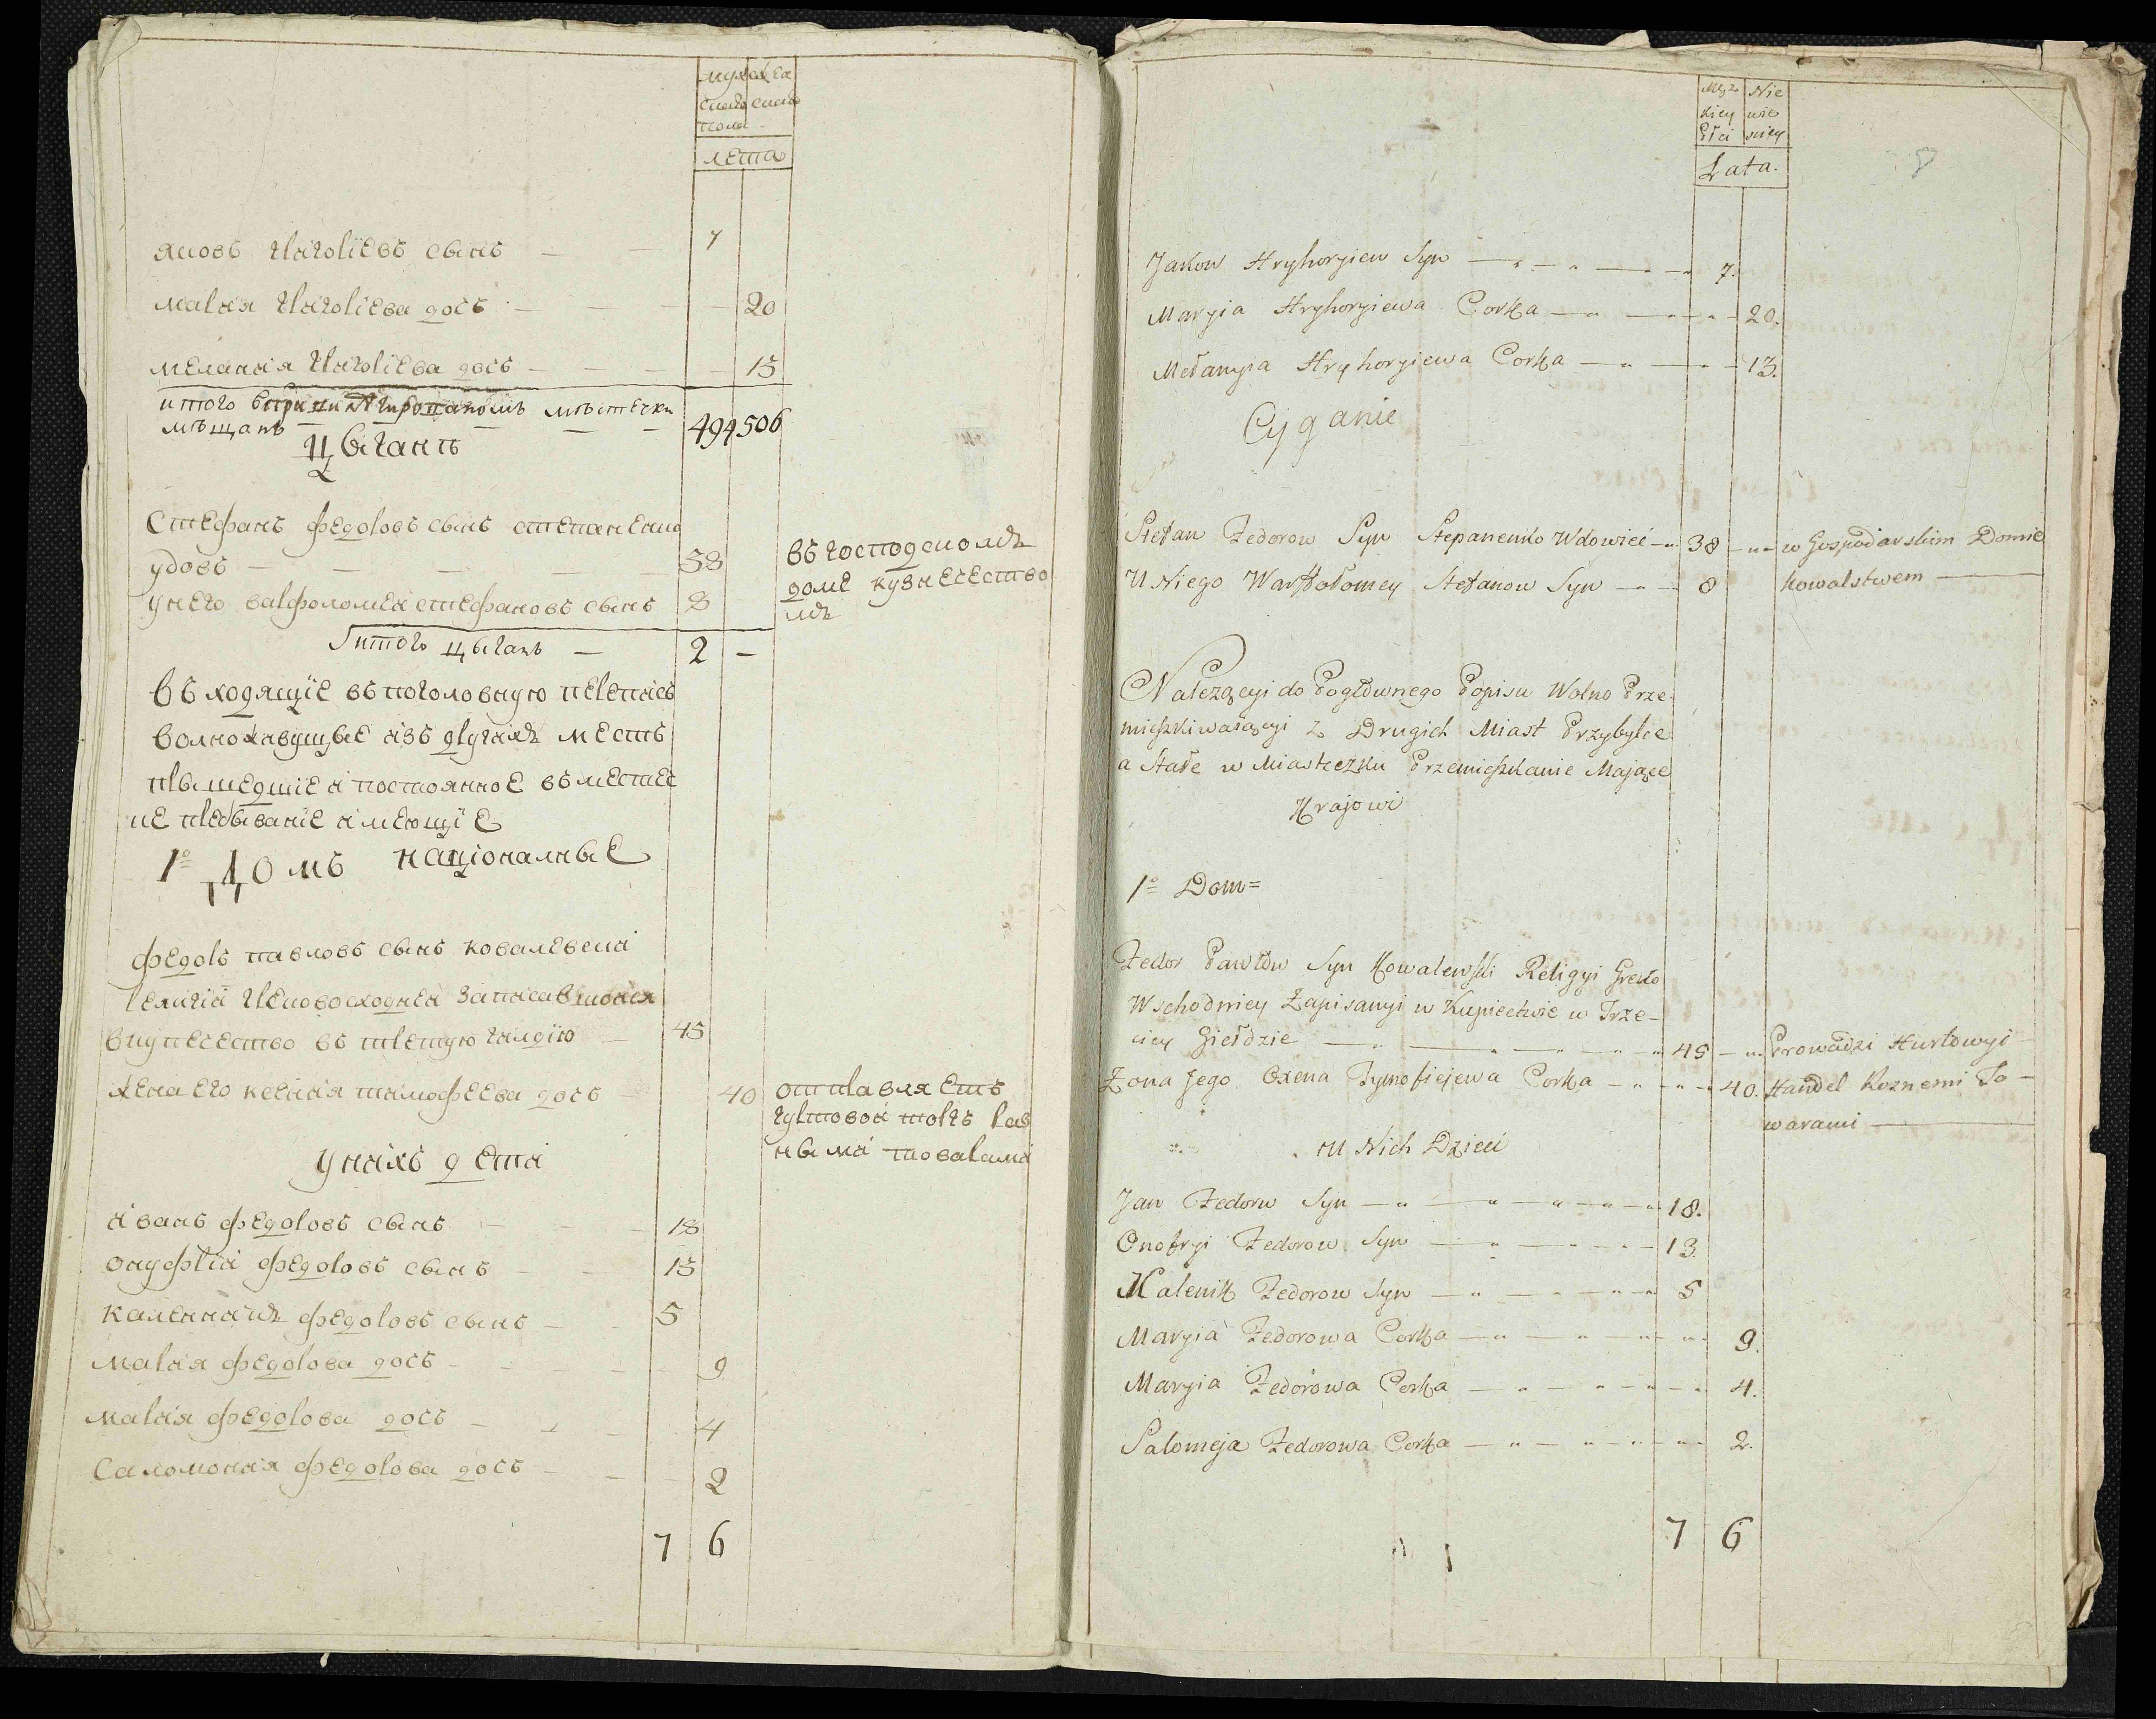 мужеска
скаго скаго
пола
лета
яковъ григоріевъ сынъ — — 7
марія григоріева дочь — — — — 20
меланія григоріева дочь — — — — 13
итого мѣстечки
мѣщанъ — — — 494 506
цыганъ
стефанъ федоровъ сынъ степаненко
удовъ — — — — 38
въ господском
доме кузнечество
м
у него варфоломей стефановъ сынъ 8
итого цыганъ — 2 —
въходящіе въ поголовную перепись
волноживущые изъ другихъ местъ
прышедшіе и постоянное въ местеч
ке пребываніе имеющіе
1º домъ национальные
федоръ павловъ сынъ ковалевски
религіи грековосходнеи записавшойся
в купечество въ третую гилдію — 45
жена его ксенія тимофеева дочь — 40
отправляетъ
гуртовои торгъ раз
ными товарами
у нихъ дети
иванъ федоровъ сынъ — — — 18
онуфрій федоровъ сынъ — — 13
каленникъ федоровъ сынъ — 5
марія федорова дочь — — — — 9
марія федорова дочь — — — 4
саломонія федорова дочь — — — 2
7 6
Męz Nie
kiey wie
Płci sciey
Łata.
8
Jakow Hryhoryiew Syn — „ — „ — „ 7.
Maryia Hryhoryiewa Corka — „ — „ — „ — 20.
Mełanyia Hryhoryiewa Corka — „ — „ — 13.
Cyganie
Stefan Fedorow Syn Stepanenko Wdowiec — „ 38 — „ w Gospodarskim Domie
U Niego Wartołomey Stefanow Syn — „ — 8 kowalstwem —
Należącyi do Pogłównego Popisu Wolno Prze-
mieszkiwaiącyi z Drugich Miast Przybyłce
a Stałe w Miasteczku Przemieszkanie Maiące
Krajowi
1º Dom=
Fedor Pawłów Syn Kowalewski Religyi Greko
Wschodniey Zapisanyi w Kupiectwie w Trze-
ciey Giełdzie — „ — „ — „ — „ 45 — „ Prowadzi Hurtowyi
Żona Jego Oxena Tymofiejewa Corka — „ — „ — 40. Handel Roznemi To-
warami —
U Nich Dzieci
Jan Fedorw Syn — „ — „ — „ — „ 18.
Onofryi Fedorow Syn — „ — „ — 13.
Kalenik Fedorow Syn — „ — „ — „ 5
Maryia Fedorowa Corka — „ — „ — „ 9.
Maryia Fedorowa Corka — „ — „ — „ 4.
Salomeja Fedorowa Corka — „ — „ — „ 2.
7 6